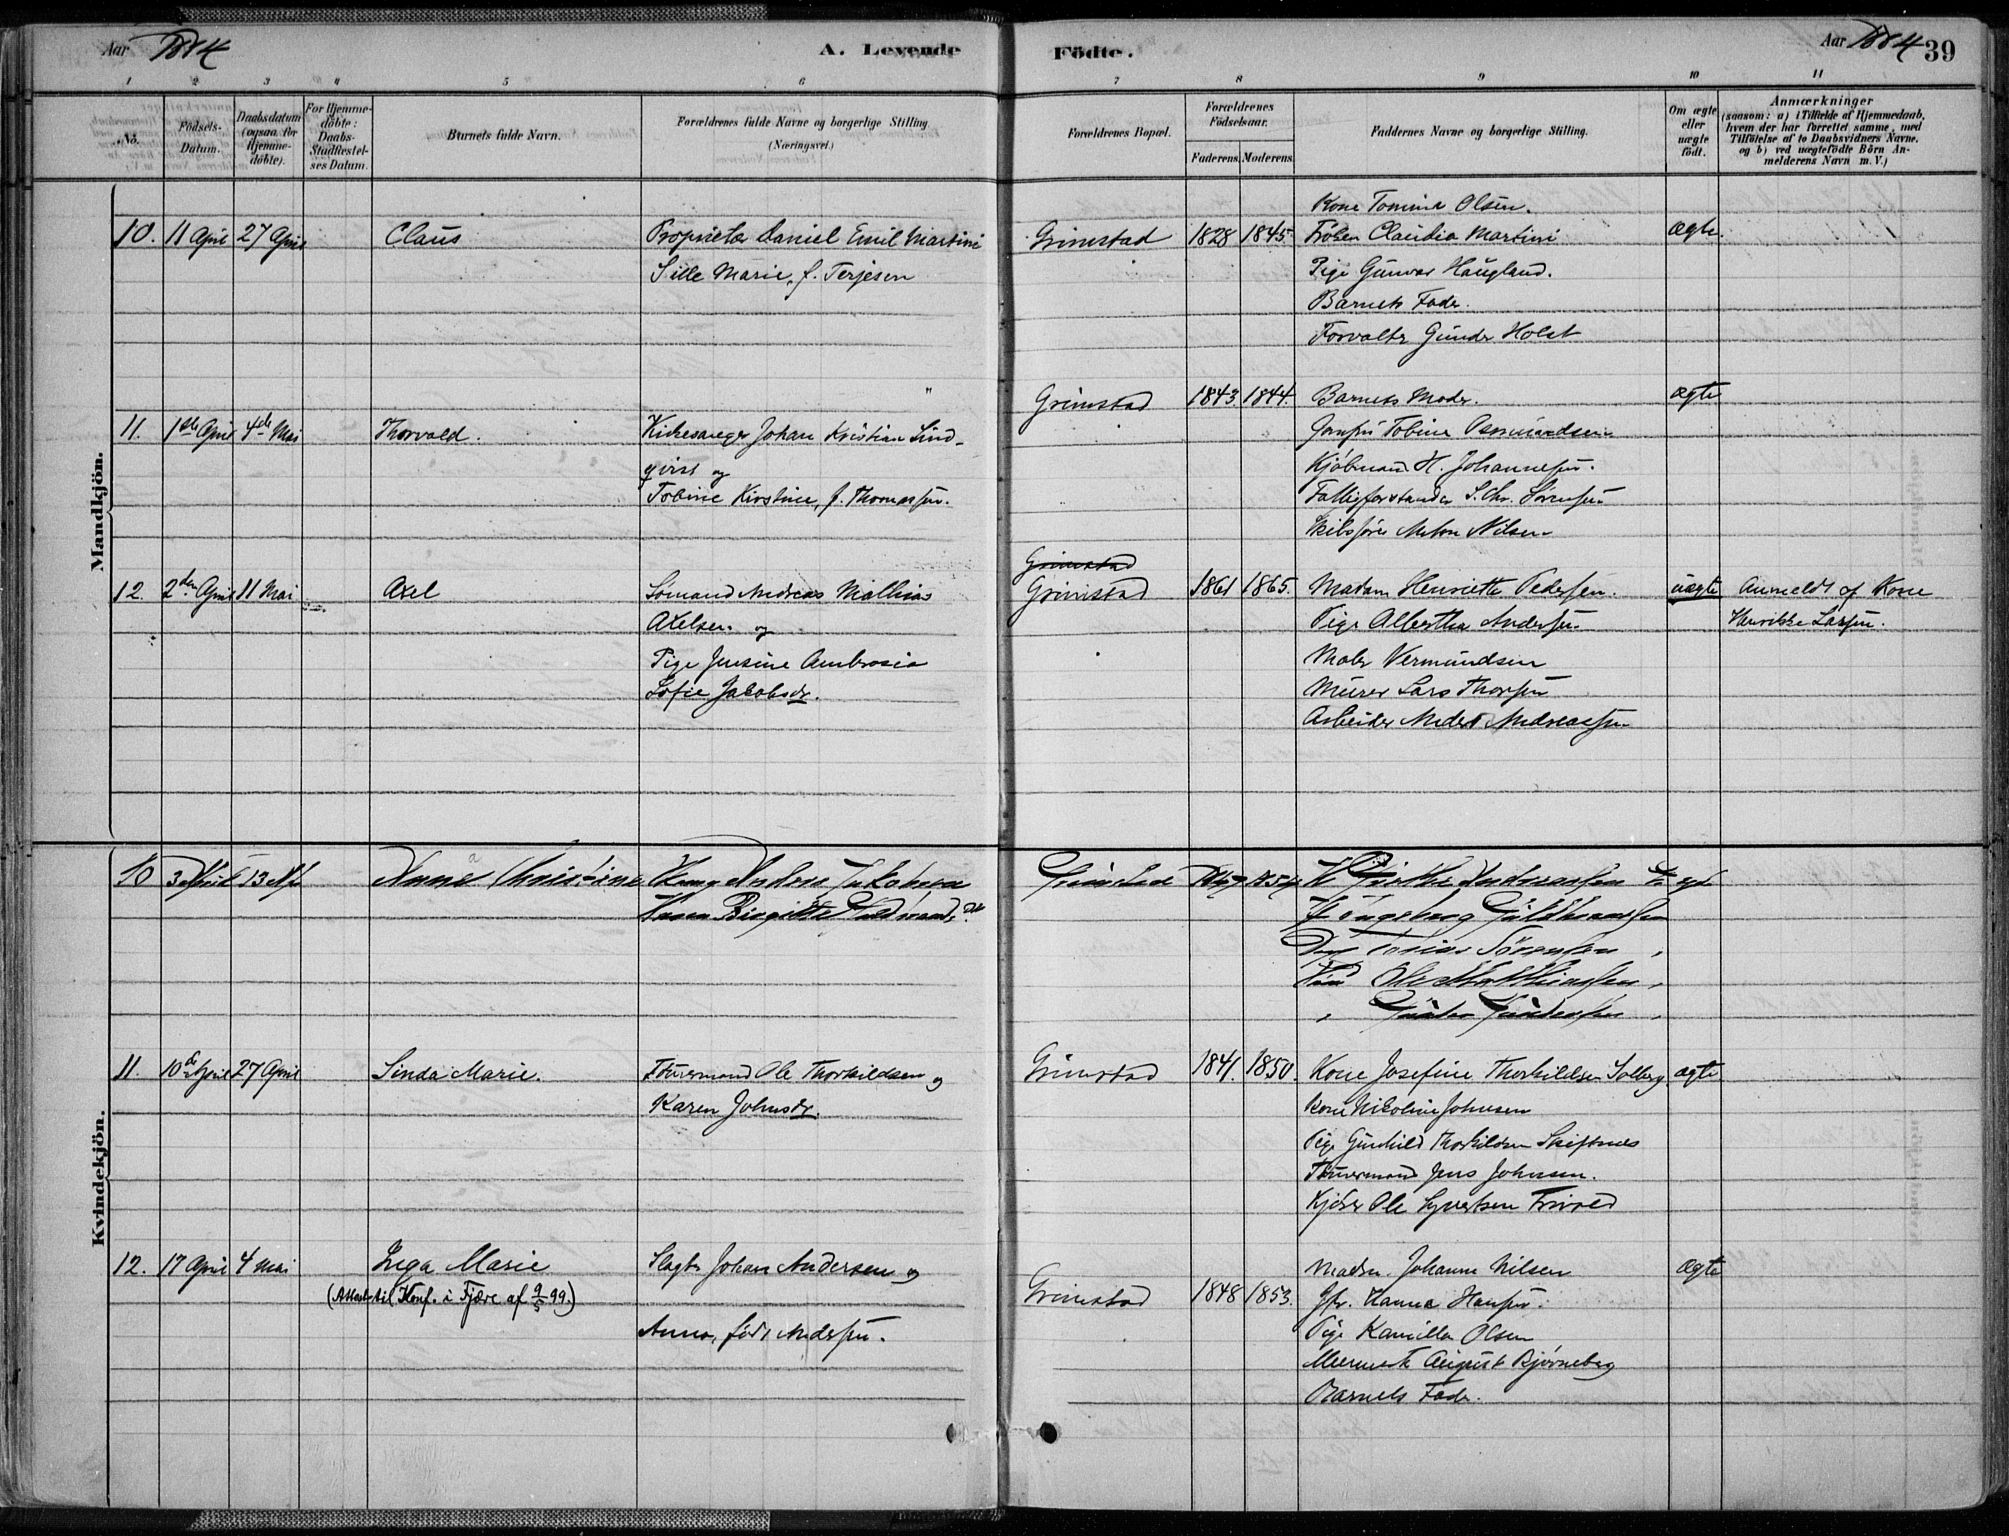 Aar 1884
A. Levende
Födte.
Aar 1884 39
1 2 3 4 5 6 7 8 9 10 11
No.
Födsels-Datum.
Daabsdatum (ogsaa for Hjemmedöbte).
For Hjemmedöbte: Daabs-Stadfestelses Datum.
Barnets fulde Navn.
Forældrenes fulde Navne og borgerlige Stilling.
(Næringsvei.)
Forældrenes Bopæl.
Forældrenes Födselsaar.
Faderens. Moderens.
Faddernes Navne og borgerlige Stilling.
Om ægte eller uægte födt.
Anmærkninger
(saasom: a) i Tilfælde af Hjemmedaab,
hvem der har forrettet samme, med
Tilföielse af to Daabsvidners Navne.
og b) ved uægtefödte Börn Anmelderens Navn m. V.)
Mandkjön.
Kone Tomine Olsen.
10. 11 April 27 April Claus Proprietær Daniel Emil Martini Grimstad 1828 1845 Frøken Claudia Martini ægte.
Sille Marie, f. Terjesen Pige Gunvor Haugland.
Barnets Fader.
Forvalter Gunder Holst
Grimstad 1843. 1844. Barnets Moder. ægte
11. 1ste April 4de Mai Thorvald. Kirkesanger Johan Kristian Lind- Jomfru Tobine Osmundsen
qvist og Kjøbmand H. Johannesen.
Tobine Kirstine, f. Thomassen. Fattigforstander S. Chr. Sørensen
Skibsfører Anton Nilsen
Grimstad
12. 2den April 11 Mai Axel Sømand Andreas Mathias Grimstad 1861 1865. Madam Henriette Pedersen. uægte Anmeldt af Kone
Axelsen og Pige Albertha Andersen Henrikke Larsen.
Pige Jensine Ambrosia Maler Vermundsen
Sofie Jakobsdr. Murer Lars Thorsen
Arbeider Anders Andreassen
Kvindekjön.
10 3 April 13 Apl Anna Christine Anders Jakobsen Grimstad
Birgitte
Ingeborg Guldbrandsen
Sörensen
Ole Matthiassen
Gundersen
11. 10de April 27 April Linda Marie. Tømmermand Ole Thorkildsen og Grimstad 1841. 1850. Kone Josefine Thorkildsen Solberg ægte
Karen Johnsdr. Kone Nikoline Johnsen
Pige Gunhild Thorkildsen Skiftenes
Tømmermand Jens Johnsen.
Kjører Ole Syvertsen Frivold
12. 17 April 4 Mai Inga Marie Slagter Johan Andersen og Madm. Johanne Nilsen ægte
(Attest til Konf. i Fjære af 9/5 99.) Grimstad 1848 1853. Jfr. Hanna Hansen.
Anna, født Andersen. Pige Kamilla Olsen
August Bjørneberg
Barnets Fader.